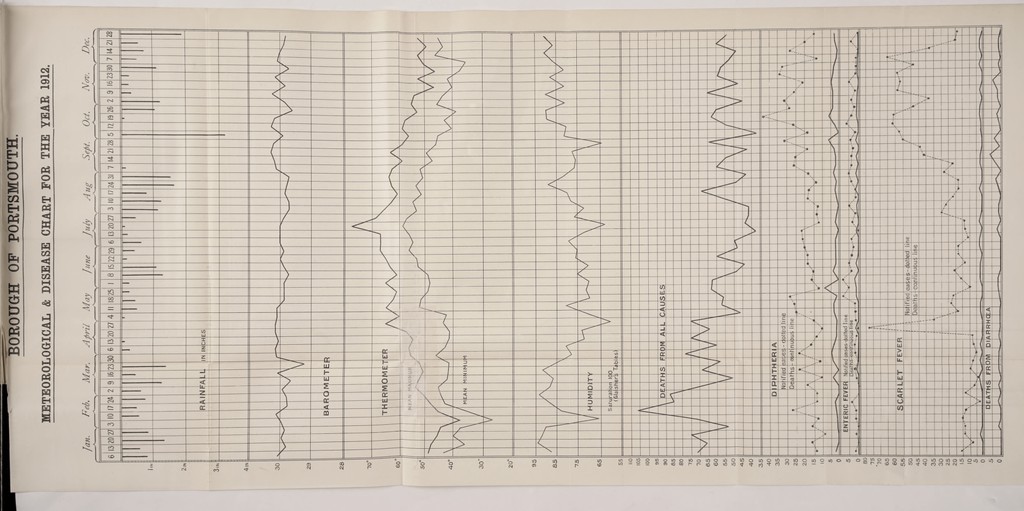 BOROUGH OF PORTSMOUTH.
METEOROLOGICAL & DISEASE CHART FOR THE YEAR 1912.
Jan. Feb. Mar. April May June July Aug Sept. Oct. Nov. Dec.
6 13 20 27 3 10 17 24 2 9 16 23 30 6 13 20 27 4 11 18 25 1 8 15 22 29 6 13 20 27 3 10 17 24 31 7 14 21 28 5 12 19 26 2 9 16 23 30 7 14 21 28
1 in
2 in
3 in
4 in
RAINFALL IN INCHES
30
29
28
BAROMETER
70°
60°
50°
40°
30°
20°
THERMOMETER
MEAN MINIMUM
95
85
75
65
55
HUMIDITY
Saturation 100
(Glaisher's Tables)
100
95
90
85
80
75
70
65
60
55
50
45
40
35
DEATHS FROM ALL CAUSES
40
35
30
25
20
15
10
5
0
DIPHTHERIA
Notified cases - dotted line
Deaths - continuous line
5
0
ENTERIC FEVER Notified cases - dotted line
Deaths - continuous line
80
75
70
65
60
55
50
45
40
35
30
25
20
15
10
5
0
SCARLET FEVER
Notified cases - dotted line
Deaths - continuous line
5
0
DEATHS FROM DIARRHŒA